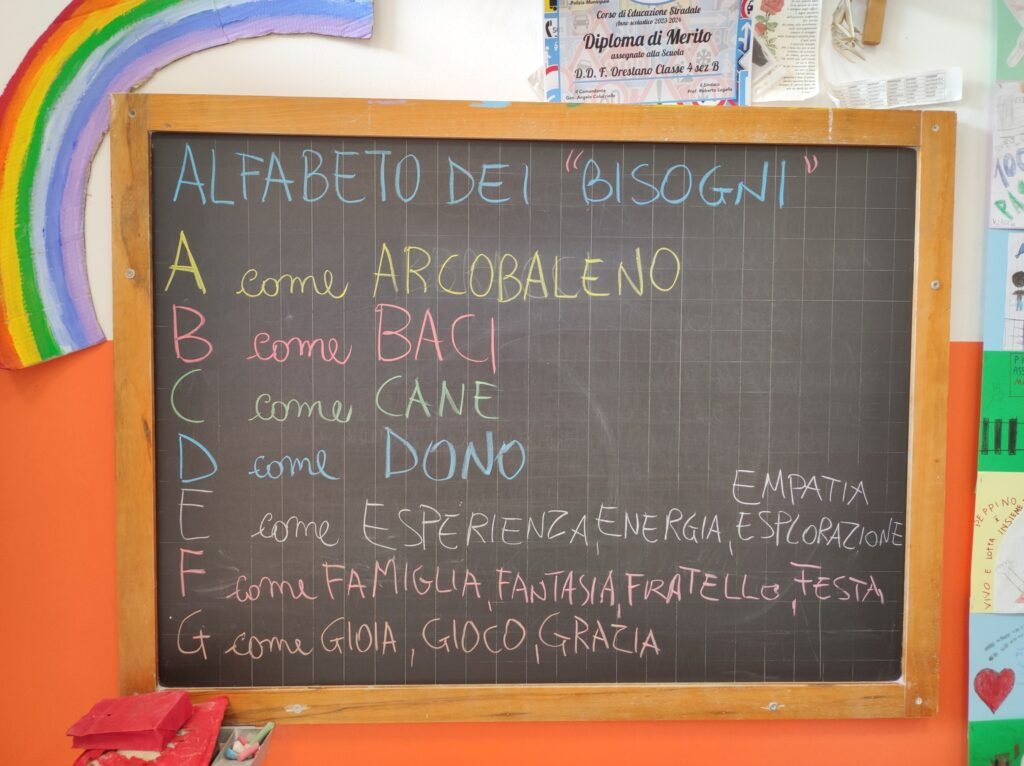 Polizia Municipale
Corso di Educazione Stradale
Anno scolastico 2023-2024
Diploma di Merito
assegnato alla Scuola
D.D. F. Orestano Classe 4 sez B
Il Comandante
Il Sindaco
ALFABETO DEI "BISOGNI"
A come ARCOBALENO
B come BACI
C come CANE
D come DONO
EMPATIA
E come ESPERIENZA, ENERGIA, ESPLORAZIONE
F come FAMIGLIA, FANTASIA, FRATELLO, FESTA
G come GIOIA, GIOCO, GRAZIA
PEPPINO
È
VIVO E LOTTA INSIEME